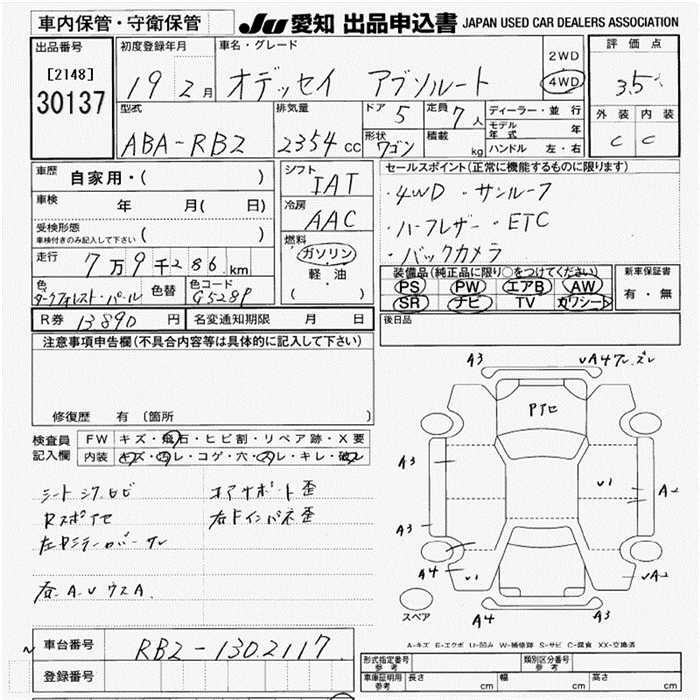 車内保管・守衛保管 JU 愛知 出品申込書 JAPAN USED CAR DEALERS ASSOCIATION
出品番号 初度登録年月 車名・グレード 2WD 評価点
[2148] 19 2月 オデッセイ アブソルート 4WD 3.5
30137 型式 排気量 ドア 5 定員 7人 ディーラー・並行 外装 内装
ABA-RB2 2354cc 形状 ワゴン 積載 kg モデル年式 年 C C
ハンドル 左・右
車歴 自家用・( ) シフト IAT セールスポイント(正常に機能するものに限ります)
車検 年 月( 日) 冷房 AAC ・4WD ・サンルーフ
受検形態 ・ハーフレザー ・ETC
車検付きのみ記入して下さい( ) 燃料 ガソリン ・バックカメラ
走行 7万9千286km 軽・油 装備品(純正品に限り○をつけてください) 新車保証書
色 ダークフォレスト・パール 色替 色コード G528P ( ) PS PW エアB AW 有・無
SR ナビ TV カワシート
R券 13890円 名変通知期限 月 日 後日品
注意事項申告欄(不具合内容等は具体的に記入して下さい)
修復歴 有 〔箇所 〕
検査員記入欄 FW キズ・飛石・ヒビ割・リペア跡・X要
内装 キズ・汚レ・コゲ・穴・スレ・キレ・破レ
コアサポート歪
右Fインパネ歪
A3
A3
A3
A4
U1
A4
A3
U1
A2
スペア
A-キズ E-エクボ U-凹み W-補修跡 S-サビ C-腐食 XX-交換済
車台番号 RB2-1302117
登録番号
形式指定番号 参考 類別区分番号 参考
車庫証明用 参考 長さ cm 幅 cm 高さ cm